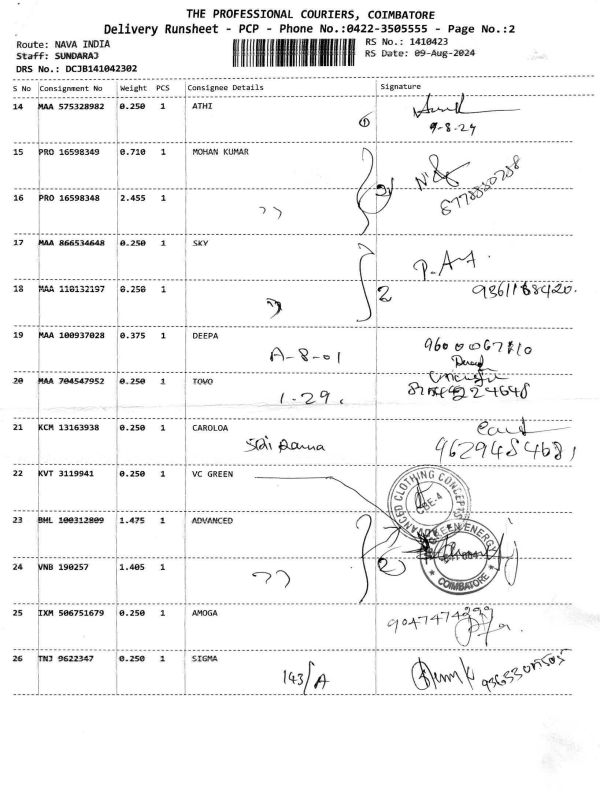 THE PROFESSIONAL COURIERS, COIMBATORE
Delivery Runsheet - PCP - Phone No.:0422-3505555 - Page No.:2
Route: NAVA INDIA RS No.: 1410423
Staff: SUNDARAJ RS Date: 09-Aug-2024
DRS No.: DCJB141042302
S No Consignment No Weight PCS Consignee Details Signature
14 MAA 575328982 0.250 1 ATHI
① 9-8-24
15 PRO 16598349 0.710 1 MOHAN KUMAR
2
16 PRO 16598348 2.455 1
,,
17 MAA 866534648 0.250 1 SKY
18 MAA 110132197 0.250 1 2 9361168420.
,,
19 MAA 100937028 0.375 1 DEEPA
A-8-01
20 MAA 704547952 0.250 1 TOVO
1-29.
21 KCM 13163938 0.250 1 CAROLOA
9629484681
22 KVT 3119941 0.250 1 VC GREEN
ADVANCED CLOTHING CONCEPTS
CBE-4
23 BHL 100312809 1.475 1 ADVANCED
GREEN ENERGY
24 VNB 190257 1.405 1 2
,,
* COIMBATORE *
25 IXM 506751679 0.250 1 AMOGA
26 TNJ 9622347 0.250 1 SIGMA
143/A